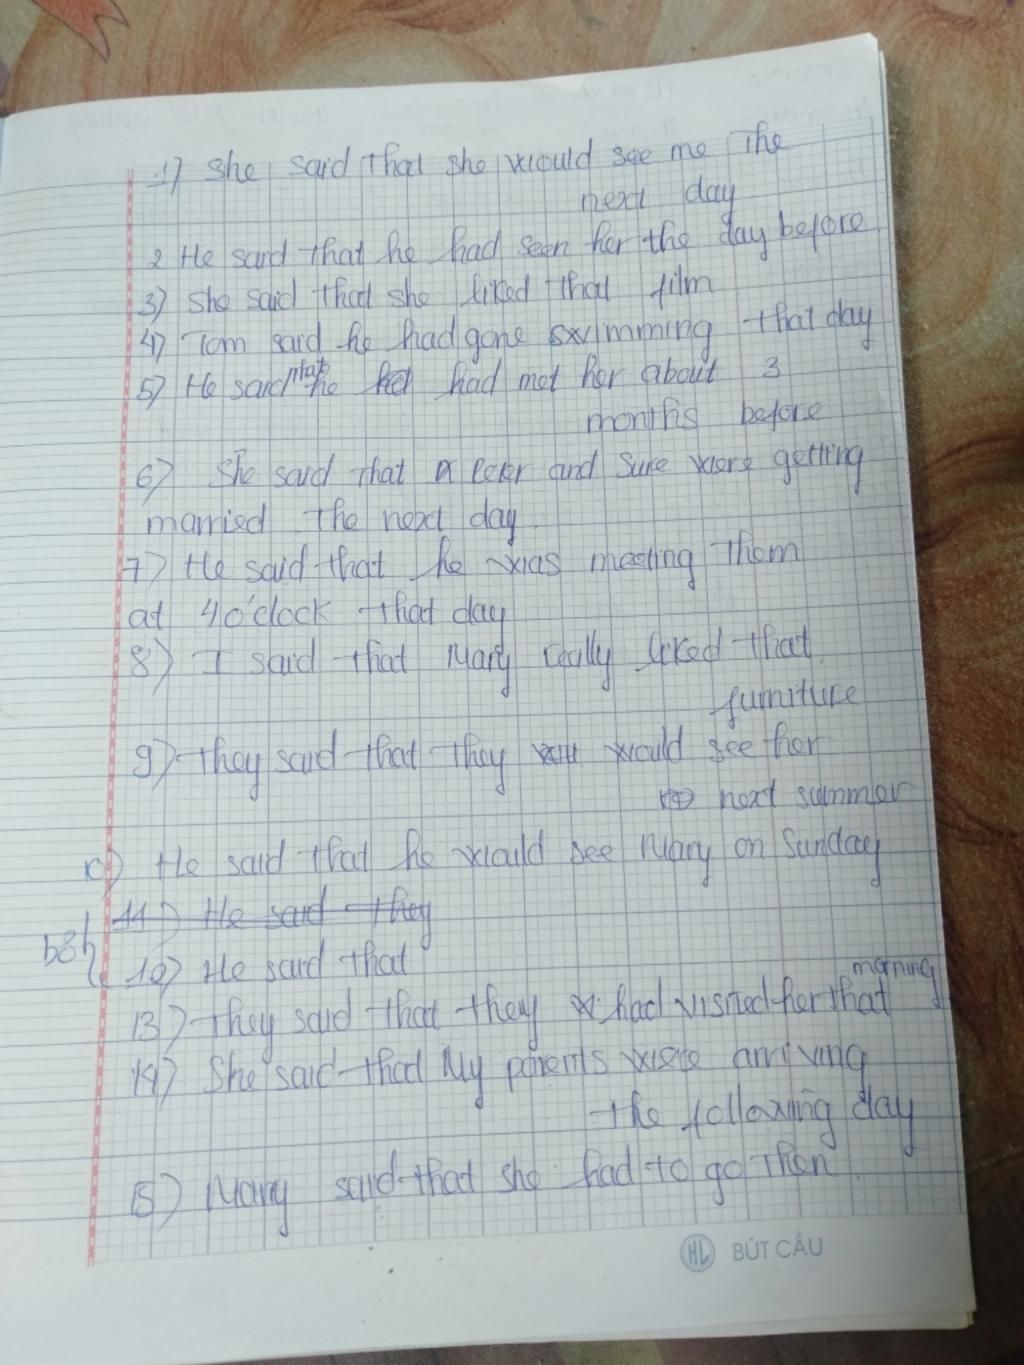 1) She said that she would see me the
next day
2 He said that he had seen her the day before
3) she said that she liked that film
4) Tom said he had gone swimming that day
5) He said that he had met her about 3
months before
6) She said that Peter and Sure were getting
married the next day
7) He said that he was meeting them
at 4 o'clock that day
8) I said that Mary really liked that
furniture
9) They said that they will would see her
next summer
10) He said that he would see Mary on Sunday
11) He said they
bsh
12) He said that
13) They said that they had visited her that morning
14) She said that My parents were arriving
the following day
15) Mary said that she had to go then
HL BÚT CẦU